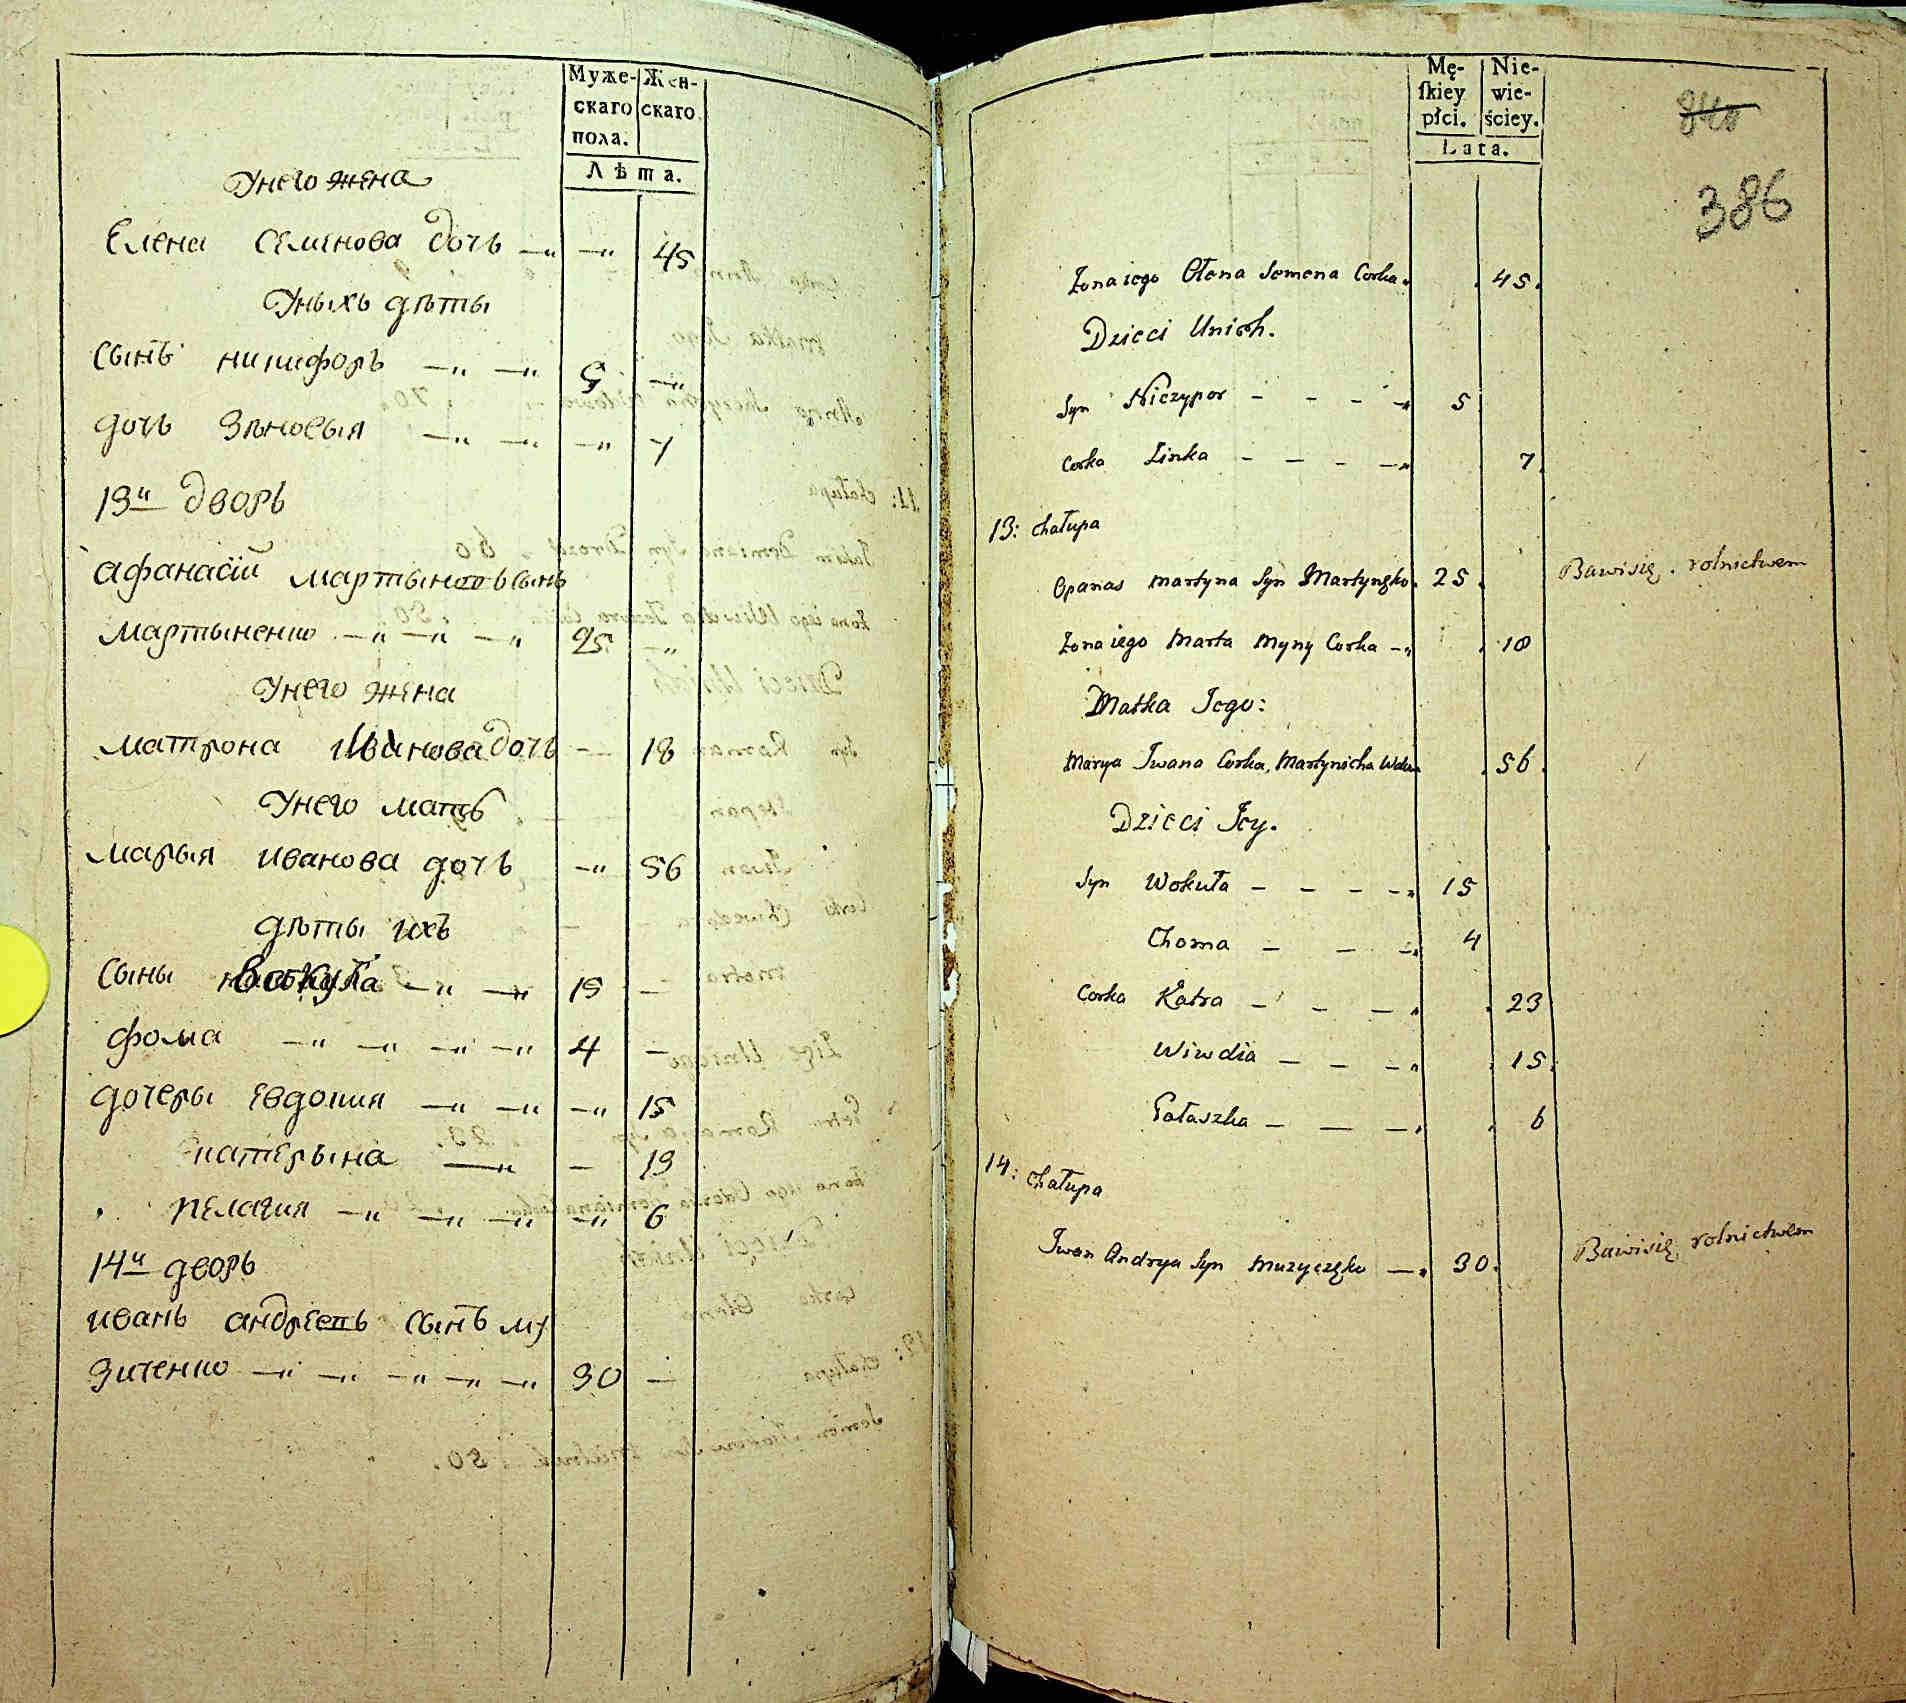 Муже-
скаго
пола.
Жен-
скаго
Лѣта.
Унего жена
Елена Семинова дочь —„ —„ 45
Уныхъ дѣты
Сынъ никифоръ —„ —„ 5 —„
дочь Зѣновыя —„ —„ —„ 7
13й дворъ
Афанасій мартыновъ сынъ
Мартыненко —„ —„ —„ 25 —„
Унего жена
Матрона Иванова дочь — 18
Унего мать
Марыя иванова дочь —„ 56
дѣты ихъ
Сыны Вакула —„ —„ 15 —
фома —„ —„ —„ —„ 4 —
дочеры Евдокия —„ —„ —„ 15
катерына —„ — 13
Пелагия —„ —„ —„ —„ 6
14й дворъ
иванъ андреевъ сынъ му
зиченко —„ —„ —„ —„ —„ 30 —
Mę-
ſkiey
płci.
Nie-
wie-
ściey.
Lata.
840
386
Żona iego Ołena Semena Corka 45.
Dzieci Unich.
Syn Niczypor – – – –„ 5
Corka Zinka – – – –„ 7
13: Chałupa
Opanas Martyna Syn Martynęko. 25. Bawi się. rolnictwem
Żona iego Marta Myny Corka –„ 18
Matka Jego:
Marya Iwana Corka, Martynicha Wdowa 56.
Dzieci Jey.
Syn Wokuła – – – –„ 15
Choma – – –„ 4
Corka Katra – – –„ 23
Wiwdia – – –„ 15.
Pałaszka – – –„ 6
14: Chałupa
Iwan Andrya Syn Muzyczęko –„ 30. Bawi się, rolnictwem